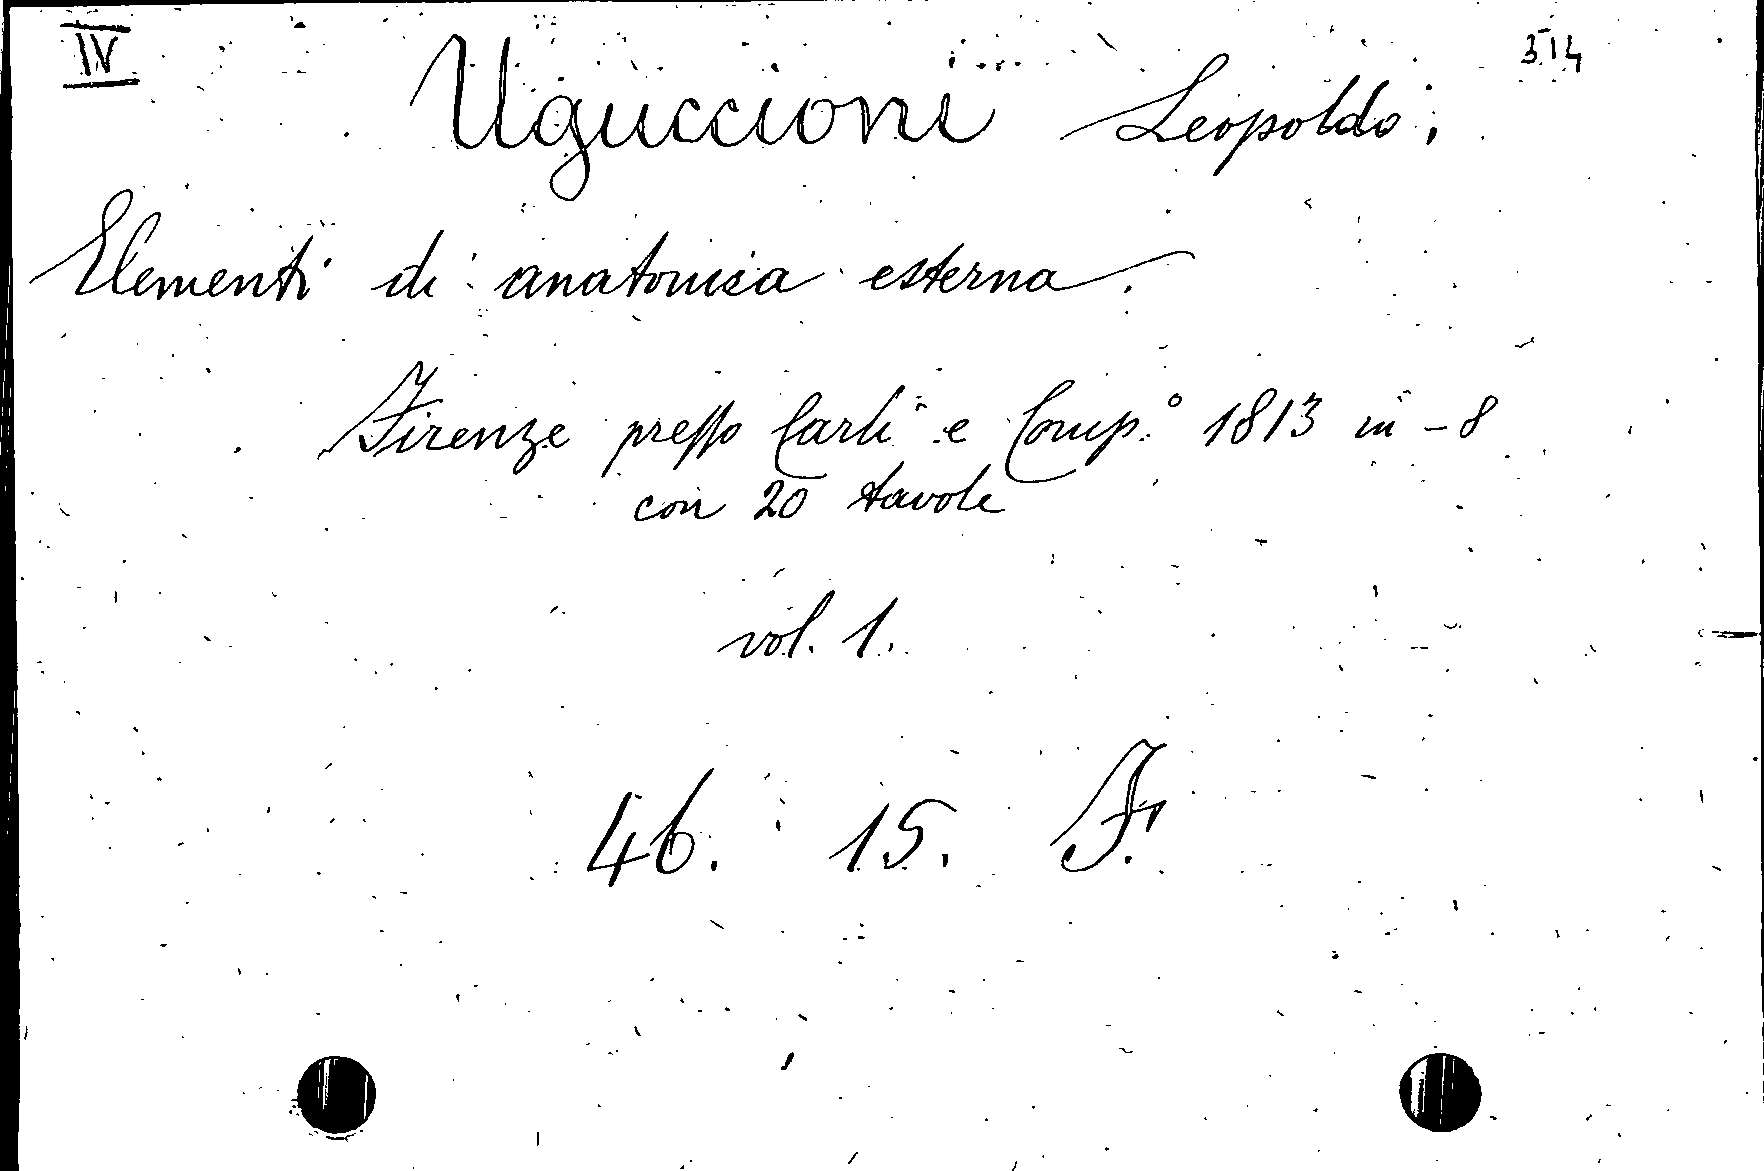 IV 514
Uguccioni Leopoldo.
Elementi di anatomia esterna.
Firenze presso Carli e Comp.° 1813 in-8
con 20 tavole
vol. 1.
46. 15. F.